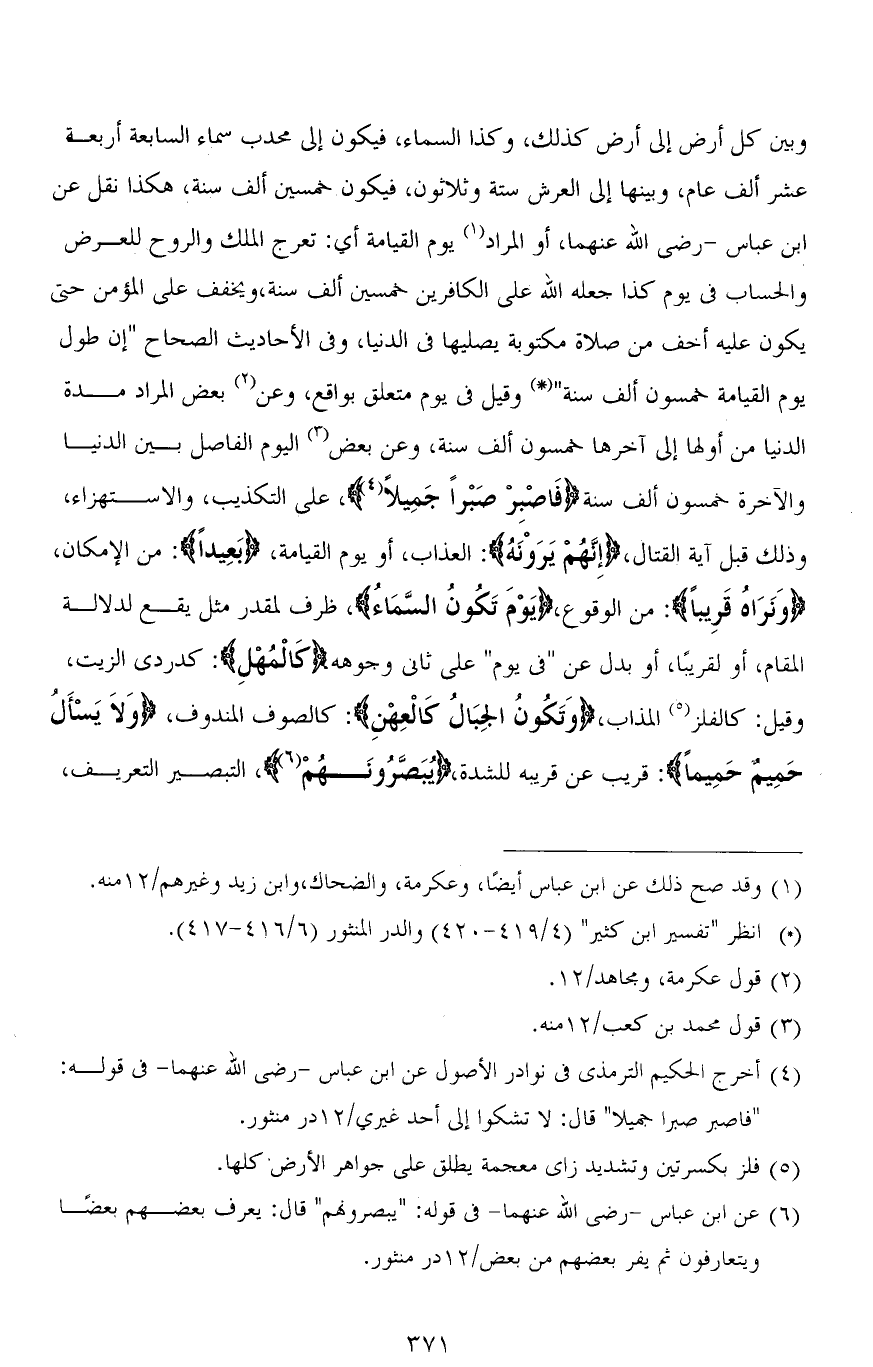 وبين كل أرض إلى أرض كذلك، وكذا السماء، فيكون إلى محدب سماء السابعة أربعة
عشر ألف عام، وبينها إلى العرش ستة وثلاثون، فيكون خمسين ألف سنة، هكذا نقل عن
ابن عباس -رضى الله عنهما، أو المراد(١) يوم القيامة أي: تعرج الملك والروح للعرض
والحساب فى يوم كذا جعله الله على الكافرين خمسين ألف سنة،ويخفف على المؤمن حتى
يكون عليه أخف من صلاة مكتوبة يصليها فى الدنيا، وفى الأحاديث الصحاح "إن طول
يوم القيامة خمسون ألف سنة"(*) وقيل فى يوم متعلق بواقع، وعن(٢) بعض المراد مدة
الدنيا من أولها إلى آخرها خمسون ألف سنة، وعن بعض(٣) اليوم الفاصل بين الدنيا
والآخرة خمسون ألف سنة ﴿فَاصْبِرْ صَبْراً جَمِيلاً(٤)﴾، على التكذيب، والاستهزاء،
وذلك قبل آية القتال،﴿إِنَّهُمْ يَرَوْنَهُ﴾: العذاب، أو يوم القيامة، ﴿بَعِيداً﴾: من الإمكان،
﴿وَنَرَاهُ قَرِيباً﴾: من الوقوع،﴿يَوْمَ تَكُونُ السَّمَاءُ﴾، ظرف لمقدر مثل يقع لدلالة
المقام، أو لقريبًا، أو بدل عن "فى يوم" على ثانى وجوهه ﴿كَالْمُهْلِ﴾: كدردى الزيت،
وقيل: كالفلز(٥) المذاب،﴿وَتَكُونُ الجِبَالُ كَالْعِهْنِ﴾: كالصوف المندوف، ﴿وَلاَ يَسْأَلُ
حَمِيمٌ حَمِيماً﴾: قريب عن قريبه للشدة،﴿يُبَصَّرُونَهُمْ(٦)﴾، التبصير التعريف،
(١) وقد صح ذلك عن ابن عباس أيضًا، وعكرمة، والضحاك،وابن زيد وغيرهم/١٢منه.
(*) انظر "تفسير ابن كثير" (٤١٩/٤-٤٢٠) والدر المنثور (٤١٦/٦-٤١٧).
(٢) قول عكرمة، ومجاهد/١٢.
(٣) قول محمد بن كعب/١٢منه.
(٤) أخرج الحكيم الترمذى فى نوادر الأصول عن ابن عباس -رضى الله عنهما- فى قوله:
"فاصبر صبرا جميلا" قال: لا تشكوا إلى أحد غيري/١٢در منثور.
(٥) فلز بكسرتين وتشديد زاى معجمة يطلق على جواهر الأرض كلها.
(٦) عن ابن عباس -رضى الله عنهما- فى قوله: "يبصرونهم" قال: يعرف بعضهم بعضًا
ويتعارفون ثم يفر بعضهم من بعض/١٢در منثور.
٣٧١